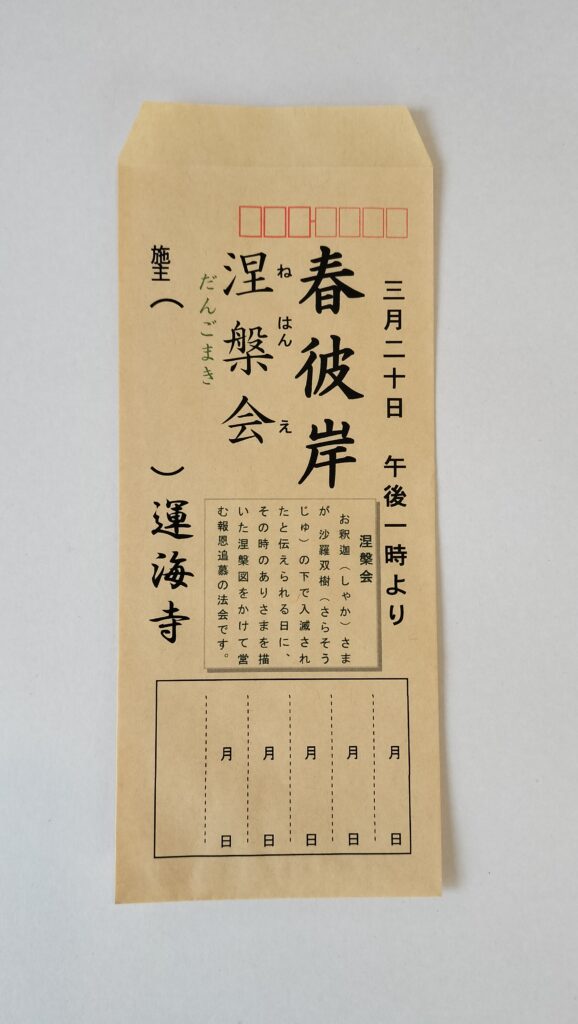 三月二十日　午後一時より
春彼岸
ねはんえ
涅槃会
だんごまき
施主（　　　）運海寺
涅槃会
お釈迦（しゃか）さま
が 沙羅双樹（さらそう
じゅ）の下で入滅され
たと伝えられる日に、
その時のありさまを描
いた涅槃図をかけて営
む報恩追慕の法会です。
月　日
月　日
月　日
月　日
月　日